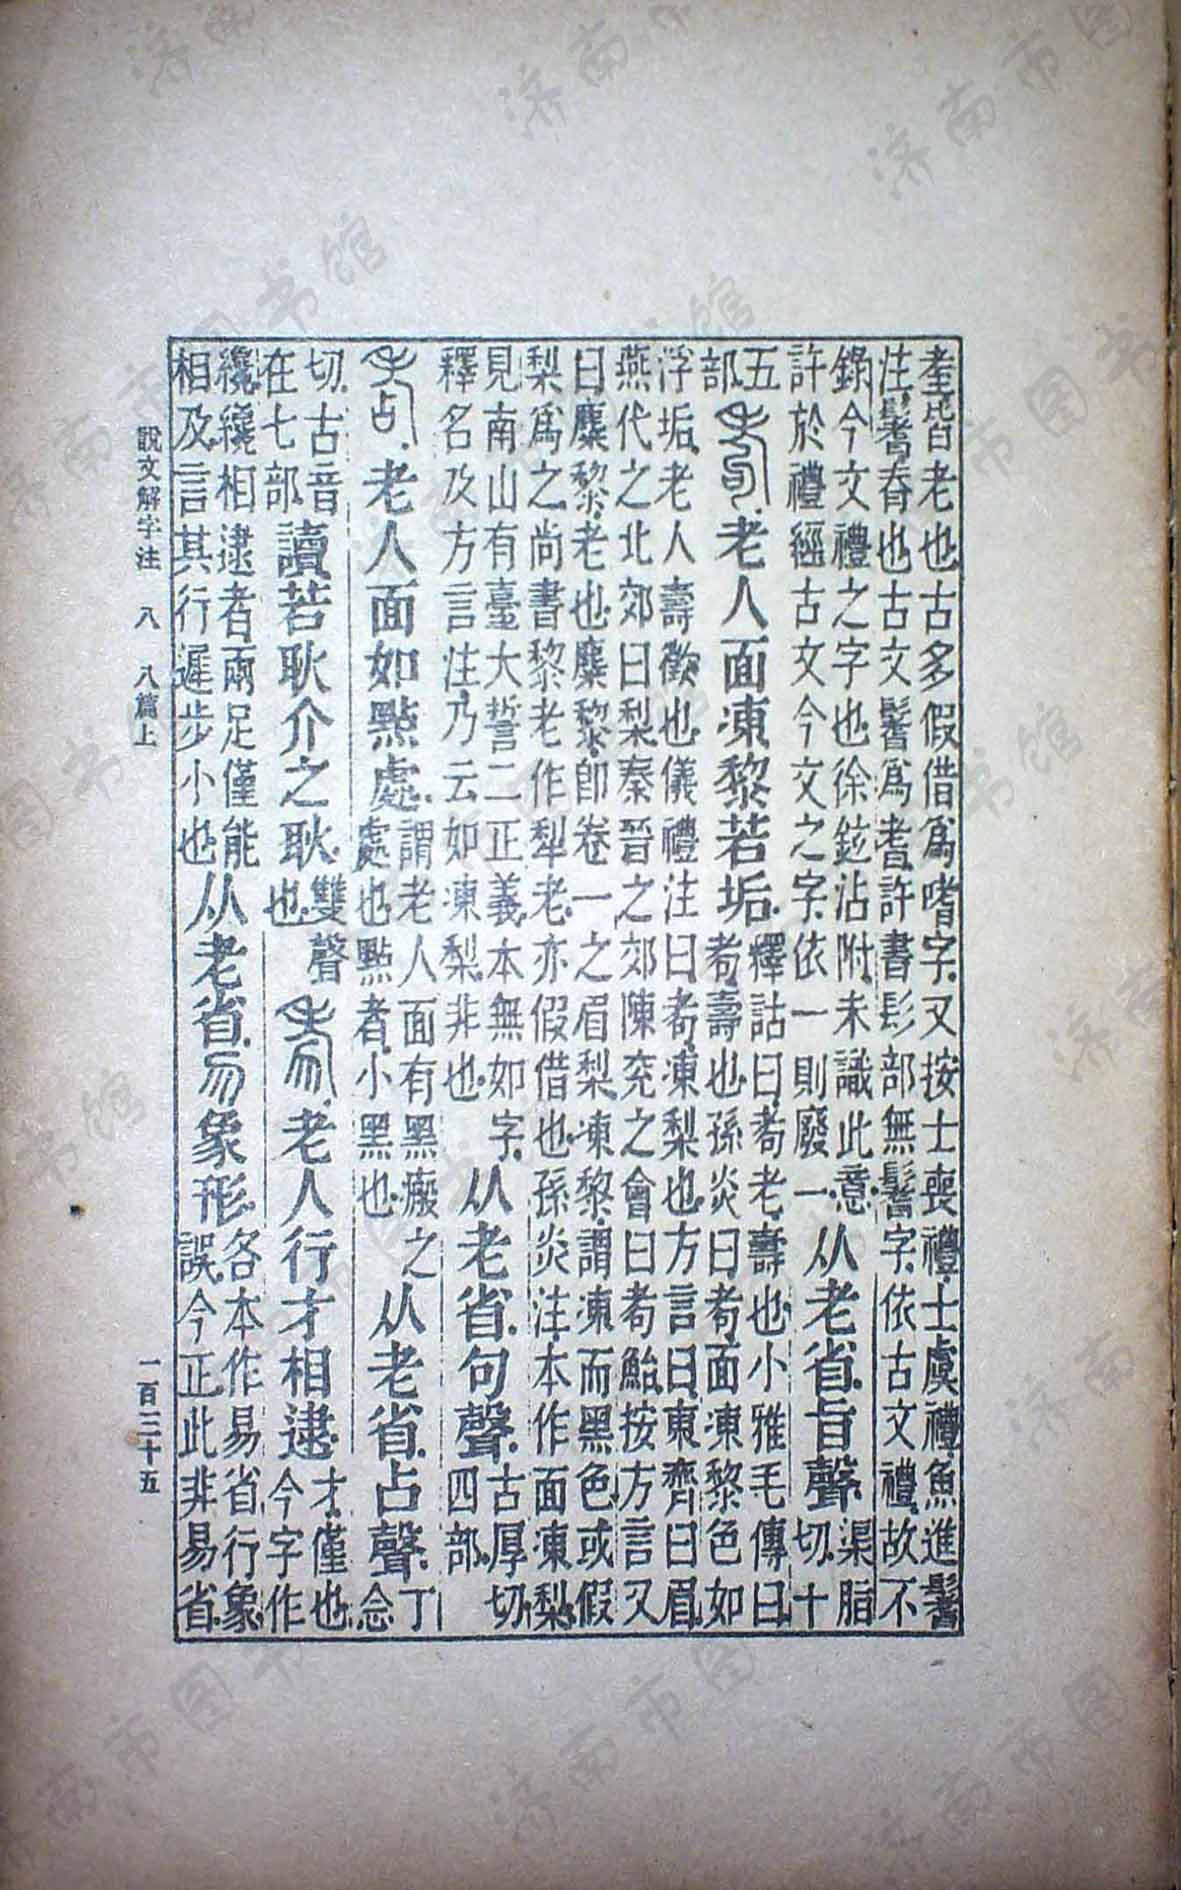 耊皆老也古多假借爲嗜字又按士喪禮士虞禮魚進鬐
注鬐脊也古文鬐爲耆許書髟部無鬐字依古文禮故不
錄今文禮之字也徐鉉沾附未識此意
許於禮經古文今文之字依一則廢一
从老省旨聲
渠脂
切十
五
部
耇老人面凍黎若垢
釋詁曰耇老壽也小雅毛傳曰
耇壽也孫炎曰耇面凍黎色如
浮垢老人壽徵也儀禮注曰耇凍梨也方言曰東齊曰眉
燕代之北郊曰梨秦晉之郊陳兗之會曰耇鮐按方言又
曰麋黎老也麋黎卽卷一之眉梨凍黎謂凍而黑色或假
梨爲之尚書黎老作犁老亦假借也孫炎注本作面凍梨
見南山有臺大誓二正義本無如字
釋名及方言注乃云如凍梨非也
从老省句聲
古厚切
四部
老人面如點處
謂老人面有黑癍之
處也點者小黑也
从老省占聲
丁
念
切古音
在七部
讀若耿介之耿
雙聲
也
老人行才相逮
才僅也
今字作
纔纔相逮者兩足僅能
相及言其行遲步小也
从老省易象形
各本作易省行象
誤今正此非易省
說文解字注 八 八篇上 一百三十五
济南市图书馆